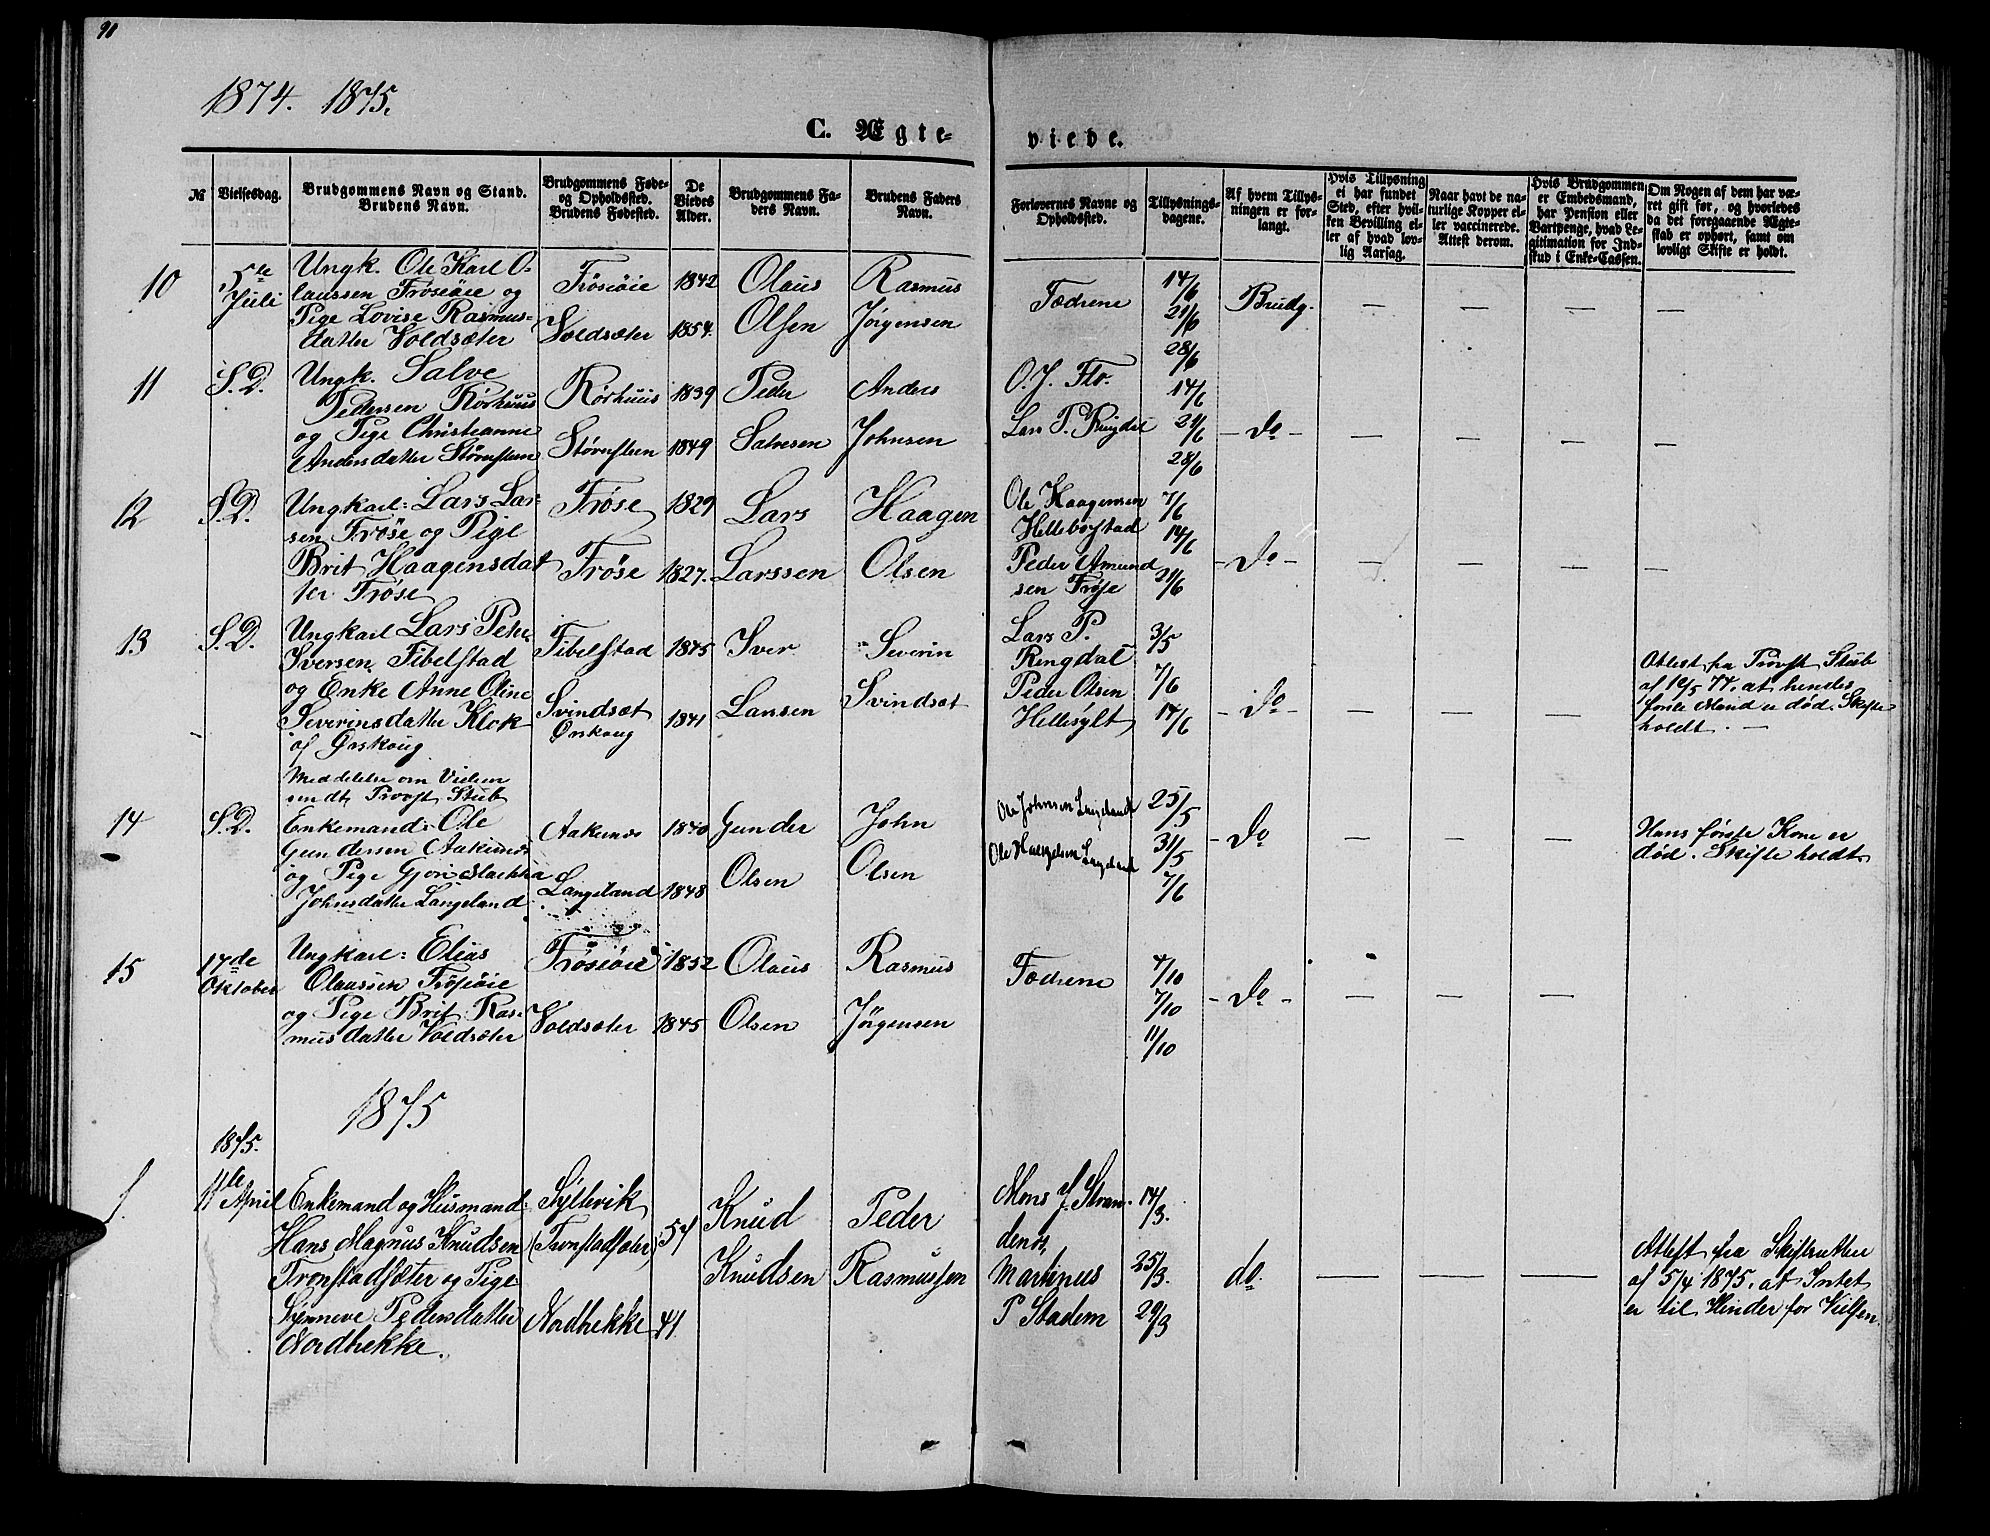 90
1874. 1875.
C. Ægte-
viede.
№
Vielsesdag.
Brudgommens Navn og Stand.
Brudens Navn.
Brudgommens Føde-
og Opholdssted.
Brudens Fødested.
De
Viedes
Alder.
Brudgommens Fa-
ders Navn.
Brudens Faders
Navn.
Forlovernes Navne og
Opholdssted.
Tillysnings-
dagene.
Af hvem Tillys-
ningen er for-
langt.
Hvis Tillysning
ei har fundet
Sted, efter hvil-
ken Bevilling el-
ler af hvad lov-
lig Aarsag.
Naar havt de na-
turlige Kopper el-
ler vaccinerede.
Attest derom.
Hvis Brudgommen
er Embedsmand,
har Pension eller
Vartpenge, hvad Le-
gitimation for Ind-
skud i Enke-Cassen.
Om Nogen af dem har væ-
ret gift før, og hvorledes
da det foregaaende Ægte-
skab er ophørt, samt om
lovligt Skifte er holdt.
10
5te
Juli
Ungk. Ole Karl O-
laussen Frøsøie og
Pige Lovise Rasmus-
datter Voldsæter
Frøsøie
Voldsæter
1842
1854.
Olaus
Olsen
Rasmus
Jørgensen
Fædrene
14/6
21/6
28/6
Brudg.
— — — —
11
S. D.
Ungk. Salve
Pedersen Rørhuus
og Pige Christianne
Andersdatter
Rørhuus
1839
1849
Peder
Salvesen
Anders
Johnsen
O. J. Flo.
Lars P. Ringdal
14/6
21/6
28/6
- do -
— — — —
12
S. D.
Ungkarl: Lars Lar-
sen Frøse og Pige
Brit Haagensdat
ter Frøse
Frøse
Frøse
1829
1827.
Lars
Larssen
Haagen
Olsen
Ole Haagensen
Hellebostad
Peder Amund
sen Frøse
7/6
14/6
21/6
- do -
— — — —
13
S. D.
Ungkarl Lars Peter
Iversen Fibelstad
og Enke Anne Oline
Severinsdatter Klok
af Ørskoug
Meddelelse om Vielsen
sendt Provst Stub
Fibelstad
Svindsæt
Ørskoug
1845
1841
Iver
Larsen
Severin
Svindsæt
Lars P.
Ringdal
Peder Olsen
Hellesylt
3/5
7/6
14/6
- do -
— — —
Attest fra Provst Stub
af 12/5 74. at hendes
første Mand er død. Skifte
holdt. —
14
S. D.
Enkemand: Ole
Gundersen Aaknæs
og Pige Gjøri
Johnsdatter Langeland
Aaknæs
Langeland
1840
1848
Gunder
Olsen
John
Olsen
Ole Johnsen Langeland
Langeland
25/5
31/5
7/6
- do
— — —
Hans første Kone er
død. Skifte holdt
15
17de
Oktober
Ungkarl: Elias
Olaussen Frøsøie
og Pige Brit Ras-
musdatter Voldsæter
Frøsøie
Voldsæter
1852
1845
Olaus
Olsen
Rasmus
Jørgensen
Fædrene
4/10
7/10
11/10
- do -
— — —
1875
1875.
1.
11te
April
Enkemand og Husmand
Hans Magnus Knudsen
Tronstadsæter og Pige
Synneve Pedersdatter
Nordhekke.
Syltevik
(Tronstadsæter)
Nordhekke
54
41
Knud
Knudsen
Peder
Rasmussen
Mons J. Stran
denes
Martinus
P Stadem
14/3.
25/3.
29/3
do.
— — —
Attest fra Skifteretten
af 5/4 1875. at Intet
er til Hinder for Vielsen.